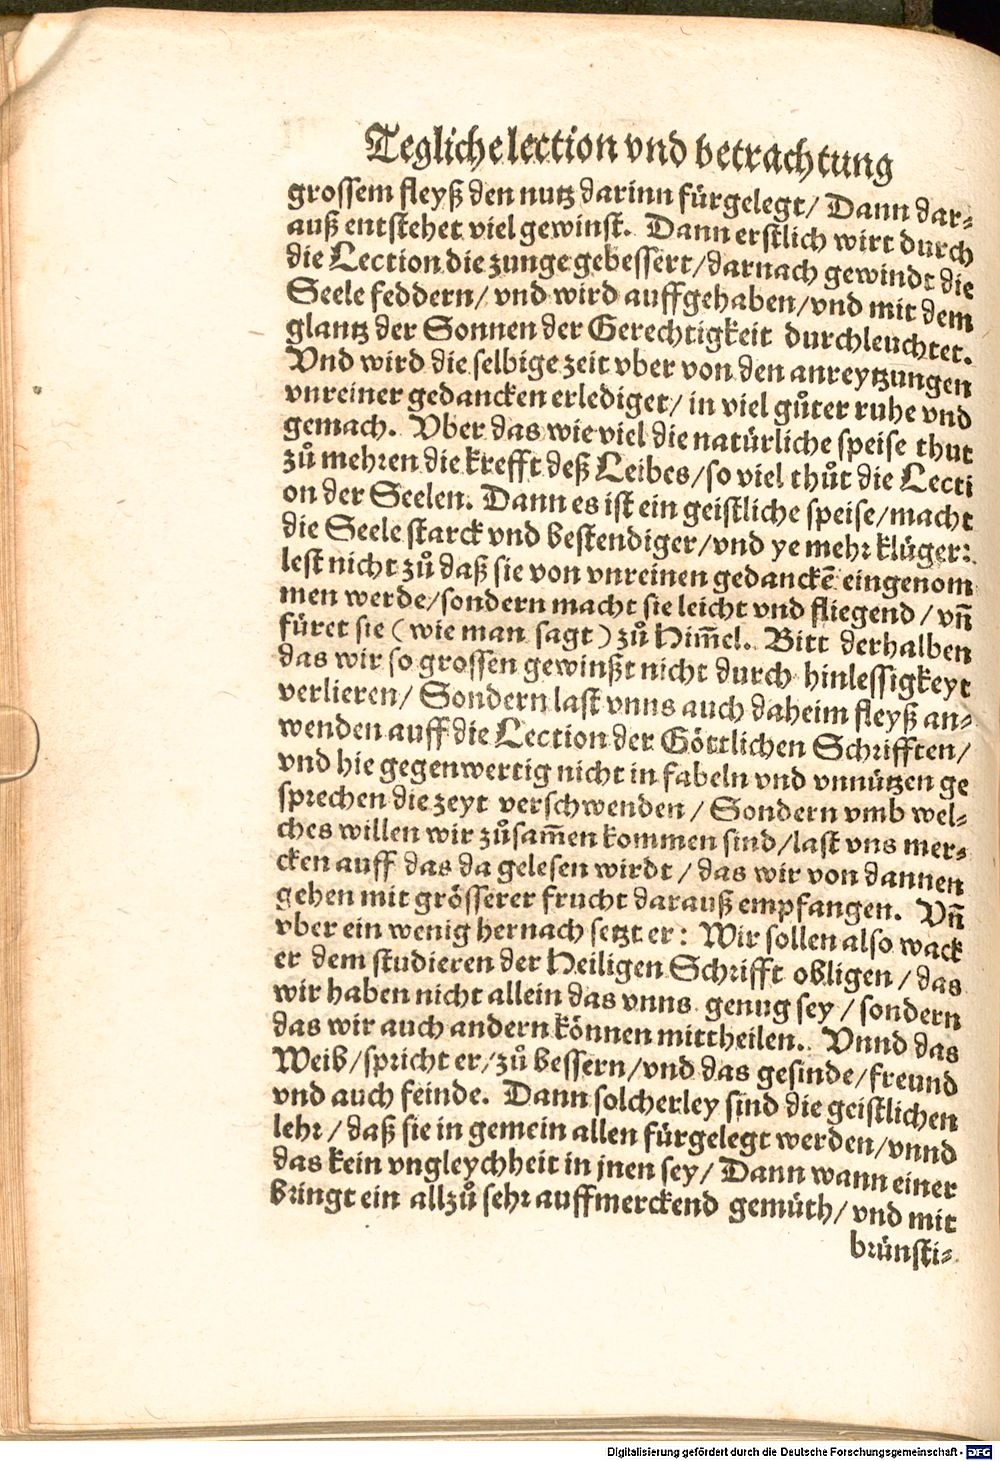 Tegliche lection vnd betrachtung
grossem fleyß den nutz darinn fürgelegt/ Dann dar-
auß entstehet viel gewinst. Dann erstlich wirt durch
die Lection die zunge gebessert/darnach gewindt die
Seele feddern/ vnd wird auffgehaben/vnd mit dem
glantz der Sonnen der Gerechtigkeit durchleuchtet.
Vnd wird die selbige zeit vber von den anreytzungen
vnreiner gedancken erlediget/ in viel gůter ruhe vnd
gemach. Vber das wie viel die natürliche speise thut
zů mehren die krefft deß Leibes/so viel thůt die Lecti
on der Seelen. Dann es ist ein geistliche speise/macht
die Seele starck vnd bestendiger/vnd ye mehr klüger:
lest nicht zů daß sie von vnreinen gedanckē eingenom
men werde/sondern macht sie leicht vnd fliegend/ vn̄
füret sie (wie man sagt) zů Him̄el. Bitt derhalben
das wir so grossen gewinßt nicht durch hinlessigkeyt
verlieren/ Sondern last vnns auch daheim fleyß an-
wenden auff die Lection der Göttlichen Schrifften/
vnd hie gegenwertig nicht in fabeln vnd vnnützen ge
sprechen die zeyt verschwenden/ Sondern vmb wel-
ches willen wir zůsam̄en kommen sind/last vns mer-
cken auff das da gelesen wirdt/ das wir von dannen
gehen mit grösserer frucht darauß empfangen. Vn̄
vber ein wenig hernach setzt er: Wir sollen also wack
er dem studieren der Heiligen Schrifft obligen/das
wir haben nicht allein das vnns genug sey/ sondern
das wir auch andern können mittheilen. Vnnd das
Weib/spricht er/zů bessern/vnd das gesinde/freund
vnd auch feinde. Dann solcherley sind die geistlichen
lehr/daß sie in gemein allen fürgelegt werden/vnnd
das kein vngleychheit in jnen sey/ Dann wann einer
bringt ein allzů sehr auffmerckend gemüth/ vnd mit
brünsti-
Digitalisierung gefördert durch die Deutsche Forschungsgemeinschaft - DFG